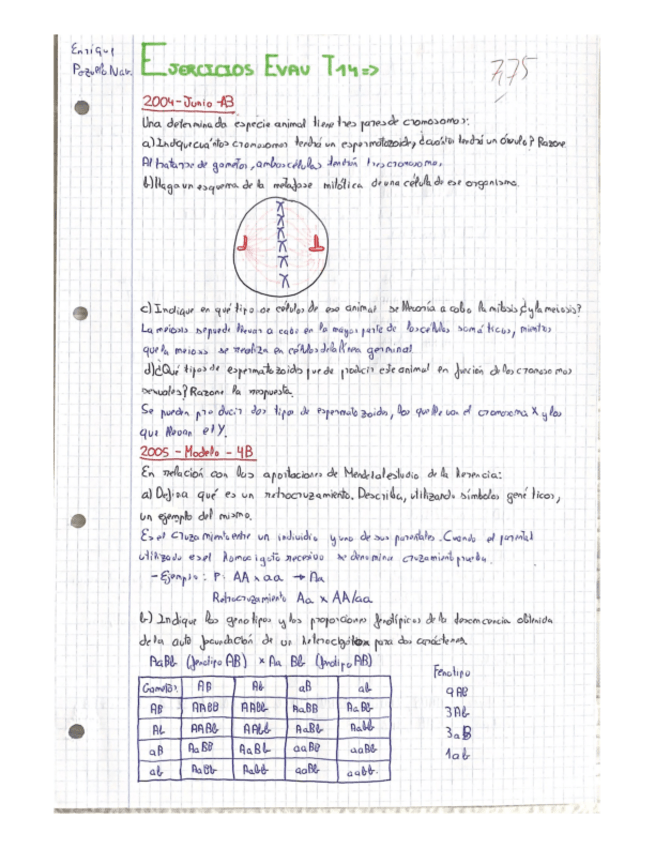 Enrique
Pozuelo Nav.
EJERCICIOS EVAU T14=>
7,75
2004-Junio-A3
Una determinada especie animal tiene tres pares de cromosomas:
a) Indique cuántos cromosomas tendrá un espermatozoide, ¿cuántos tendrá un óvulo? Razone
Al tratarse de gametos, ambas células tendrán tres cromosomas.
b) Haga un esquema de la metafase mitótica de una célula de ese organismo.
c) Indique en qué tipo de células de ese animal se llevaría a cabo la mitosis ¿y la meiosis?
La meiosis se puede llevar a cabo en la mayor parte de las células somáticas, mientras
que la meiosis se realiza en células de la línea germinal
d) ¿Qué tipos de espermatozoides puede producir este animal en función de los cromosomas
sexuales? Razone la respuesta.
Se pueden producir dos tipos de espermatozoides, los que llevan el cromosoma X y los
que llevan el Y.
2005-Modelo-4B
En relación con las aportaciones de Mendel al estudio de la herencia:
a) Defina qué es un retrocruzamiento. Describa, utilizando símbolos genéticos,
un ejemplo del mismo.
Es el cruzamiento entre un individuo y uno de sus parentales. Cuando el parental
utilizado es el homocigoto recesivo se denomina cruzamiento prueba.
- Ejemplo: P: AA x aa → Aa
Retrocruzamiento Aa x AA/aa
b) Indique los genotipos y las proporciones fenotípicas de la descendencia obtenida
de la auto fecundación de un heterocigoto para dos caracteres.
AaBb (fenotipo AB) x Aa Bb (fenotipo AB)
Gametos AB Ab aB ab
AB AABB AABb AaBB AaBb
Ab AABb AAbb AaBb Aabb
aB AaBB AaBb aaBB aaBb
ab AaBb Aabb aaBb aabb
Fenotipo
9AB
3Ab
3aB
1ab